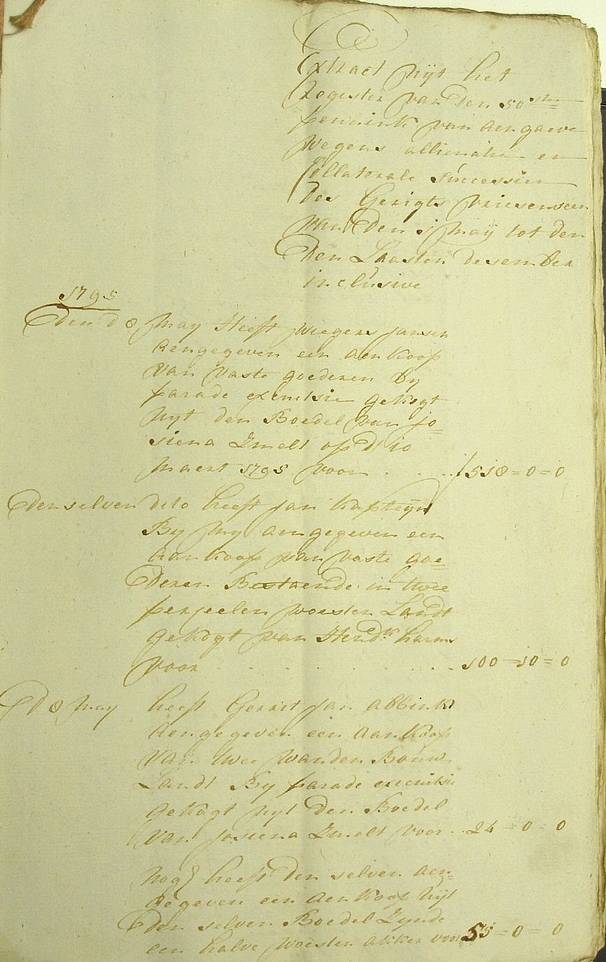 Extract uijt het
Register van den 50sten
pennink van aengaeve
wegens allienatie en
Collaterale successien
des Gerigts vriesenveen
van den 1 maij tot den
den Laasten desember
inclusive
1795
Den d 8 may Heeft wiegers Jansen
aengegeven een aenkoop
van vaste goederen by
parade executie gekogt
uyt den Boedel van Jo=
siena Smelt op d 10
maert 1795 voor . . . f 518=0=0
Den selven dito heeft Jan kapteijn
By my aengegeven een
aankoop van vaste goe=
deren Bestaende in twee
perseelen woesten Landt
gekogt van Hendk. harms
voor . . . . 100=10=0
d 8 may heeft Gerrit Jan abbink
aengegeven een aankoop
van twee vanden Bouw
Landt By parade executie
gekogt uyt den Boedel
van Josiena Smelt voor . . 24=0=0
nog heeft den selven aen=
gegeven een aenkoop uyt
den selven Boedel zynde
een halve woesten akker voor 55=0=0